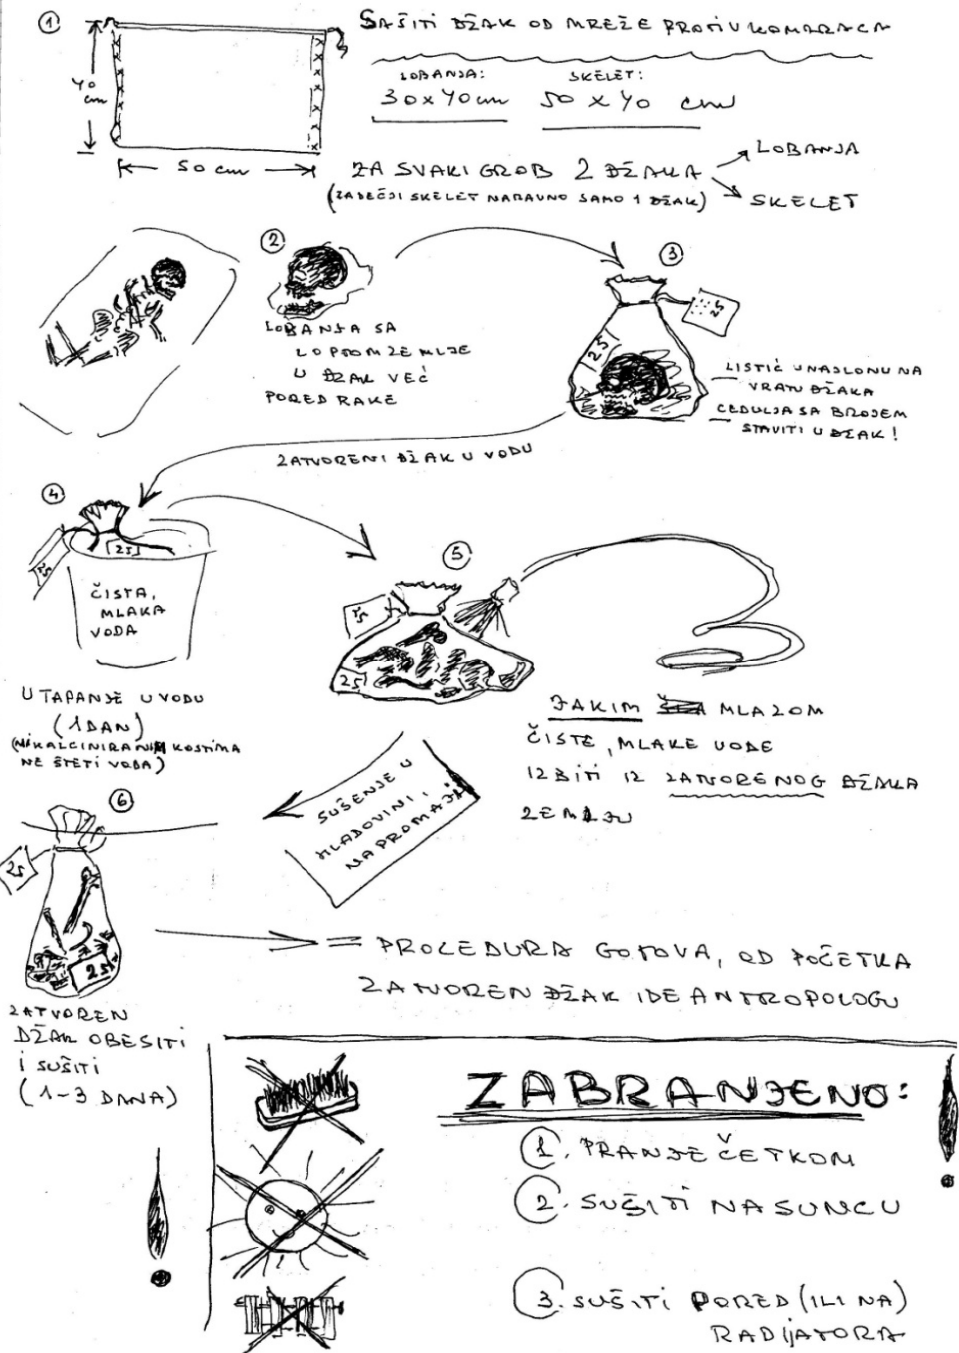 1
SAŠITI DŽAK OD MREŽE PROTIV KOMARACA
LOBANJA:
30 x 40 cm
SKELET:
50 x 40 cm
40 cm
50 cm
ZA SVAKI GROB 2 DŽAKA
LOBANJA
SKELET
(ZA DEČJI SKELET NARAVNO SAMO 1 DŽAK)
2
LOBANJA SA
LOPTOM ZEMLJE
U DŽAK VEĆ
PORED RAKE
3
25
25
LISTIĆ U NASLONU NA
VRATU DŽAKA
CEDULJA SA BROJEM
STAVITI U DŽAK!
ZATVORENI DŽAK U VODU
4
25
25
ČISTA,
MLAKA
VODA
UTAPANJE U VODU
(1 DAN)
KOSTIMA
NE ŠTETI VODA)
5
25
25
JAKIM MLAZOM
ČISTE, MLAKE VODE
IZBITI IZ ZATVORENOG DŽAKA
ZEMLJU
SUŠENJE U
HLADOVINI,
NA PROMAJI
6
25
25
ZATVOREN
DŽAK OBESITI
I SUŠITI
(1-3 DANA)
= PROCEDURA GOTOVA, OD POČETKA
ZATVOREN DŽAK IDE ANTROPOLOGU
ZABRANJENO:
!
!
1. PRANJE ČETKOM
2. SUŠITI NA SUNCU
3. SUŠITI PORED (ILI NA)
RADIJATORA